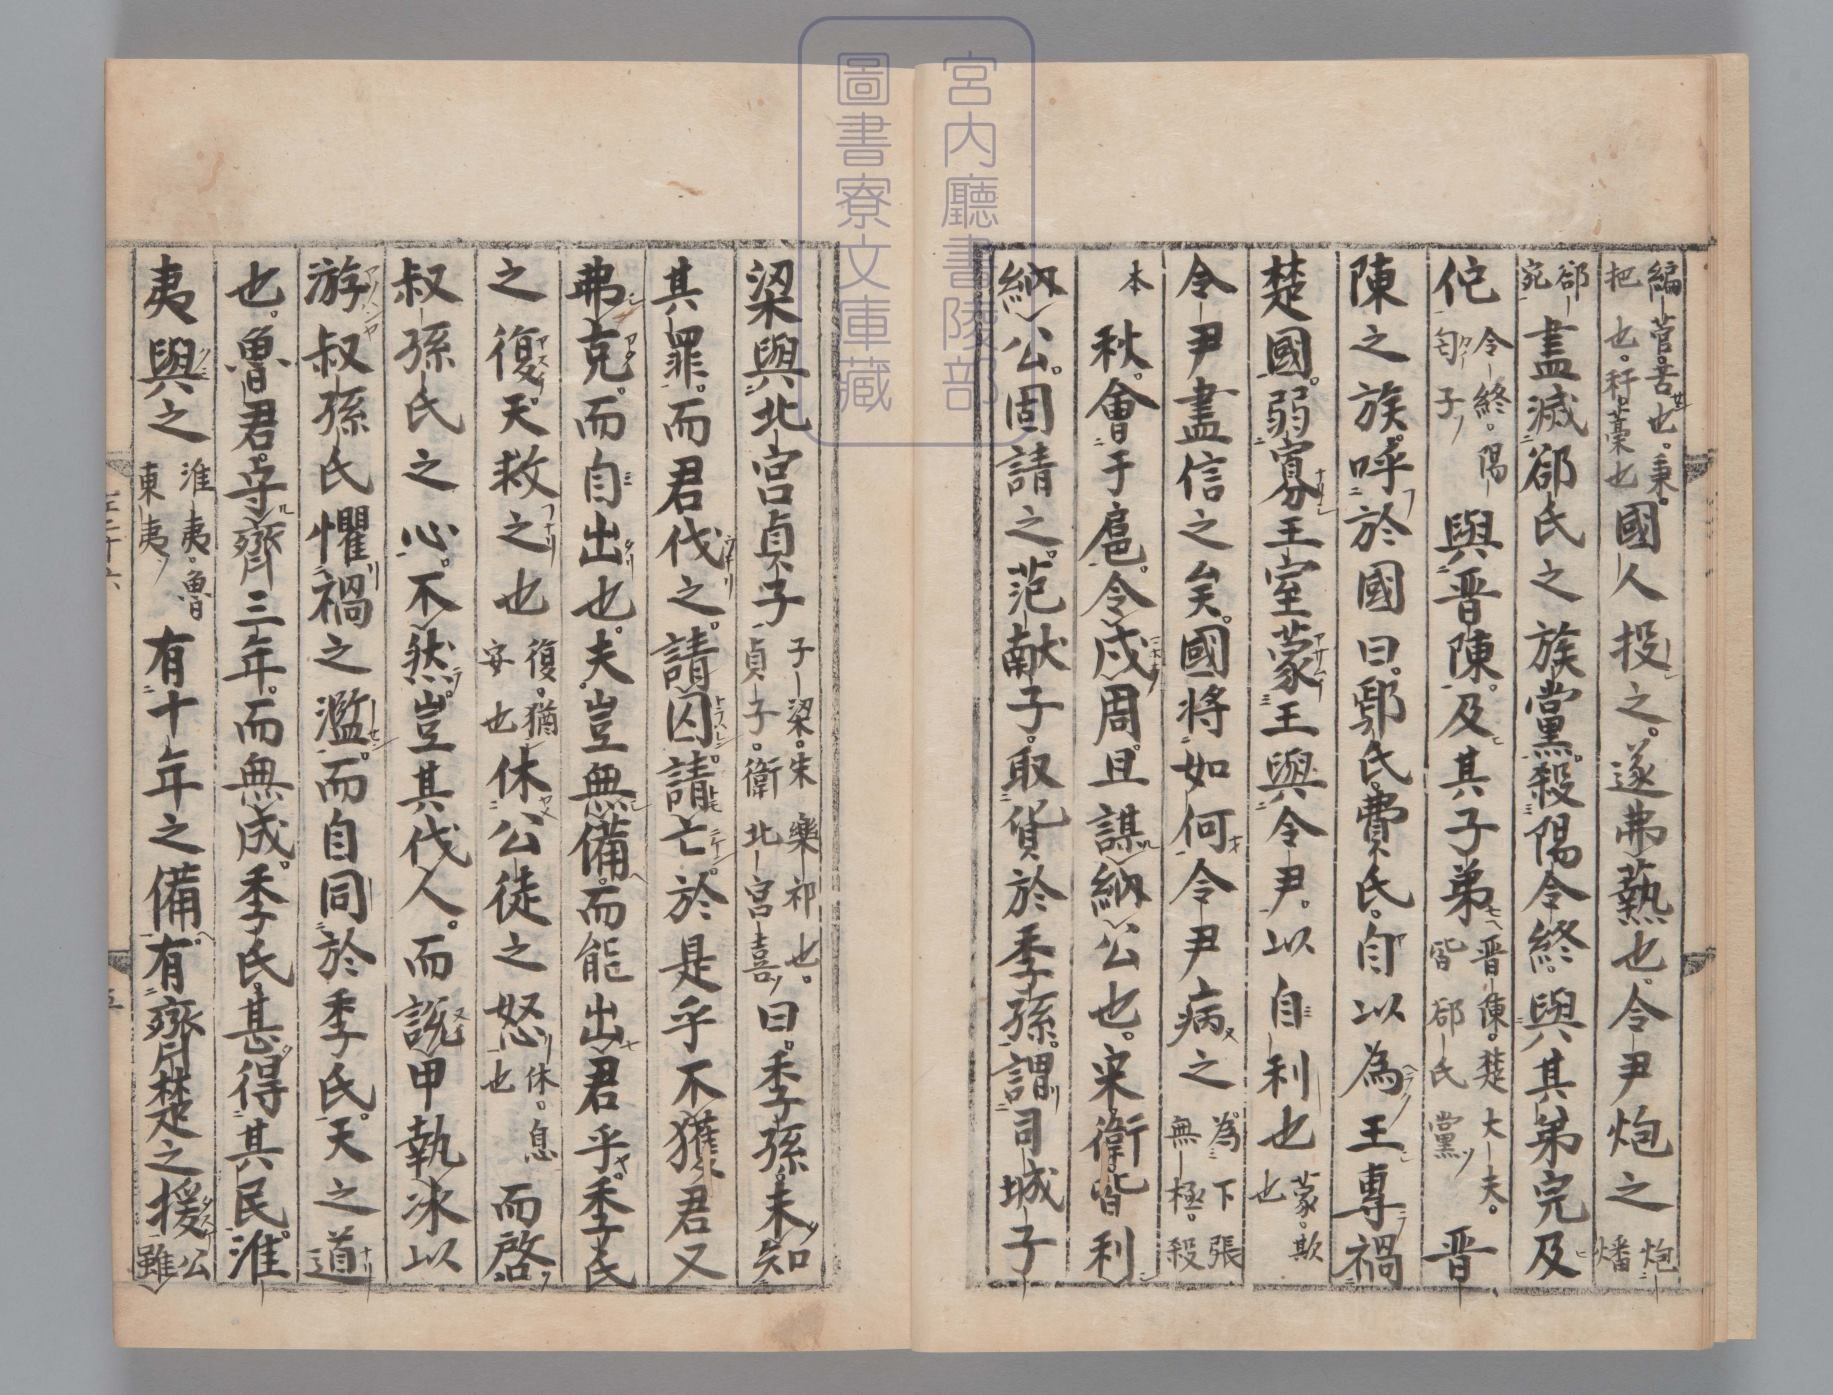 編菅。苫也。秉。把也。秆。藁也。國人投之。遂弗爇也。令尹炮之炮燔
郤宛盡滅郤氏之族黨。殺陽令終。與其弟完及
佗令終。陽匄子與晋陳。及其子弟晋陳。楚大夫。皆郤氏黨晋
陳之族。呼於國曰。鄢氏。費氏。自以為王專禍
楚國。弱寡王室。蒙王與令尹。以自利也蒙。欺也
令尹盡信之矣。國將如何。令尹病之為下張無極。殺
本秋。會于扈。令戍周。且謀納公也。宋。衛皆利
納公。固請之。范献子。取貨於季孫。謂司城子
梁與北宮貞子子梁。宋樂祁也。貞子。衛北宮喜曰。季孫。未知
其罪。而君伐之。請囚。請亡。於是乎不獲。君又
弗克。而自出也。夫豈無備。而能出君乎。季氏
之復。天救之也復。猶安也休公徒之怒休。息也而啓
叔孫氏之心。不然。豈其伐人。而説甲執冰以
游。叔孫氏懼禍之濫。而自同於季氏。天之道
也。魯君。守齊三年。而無成。季氏。甚得其民。淮
夷與之淮夷。魯東夷有十年之備。有齊楚之援公雖
宮内廳書陵部
圖書寮文庫藏